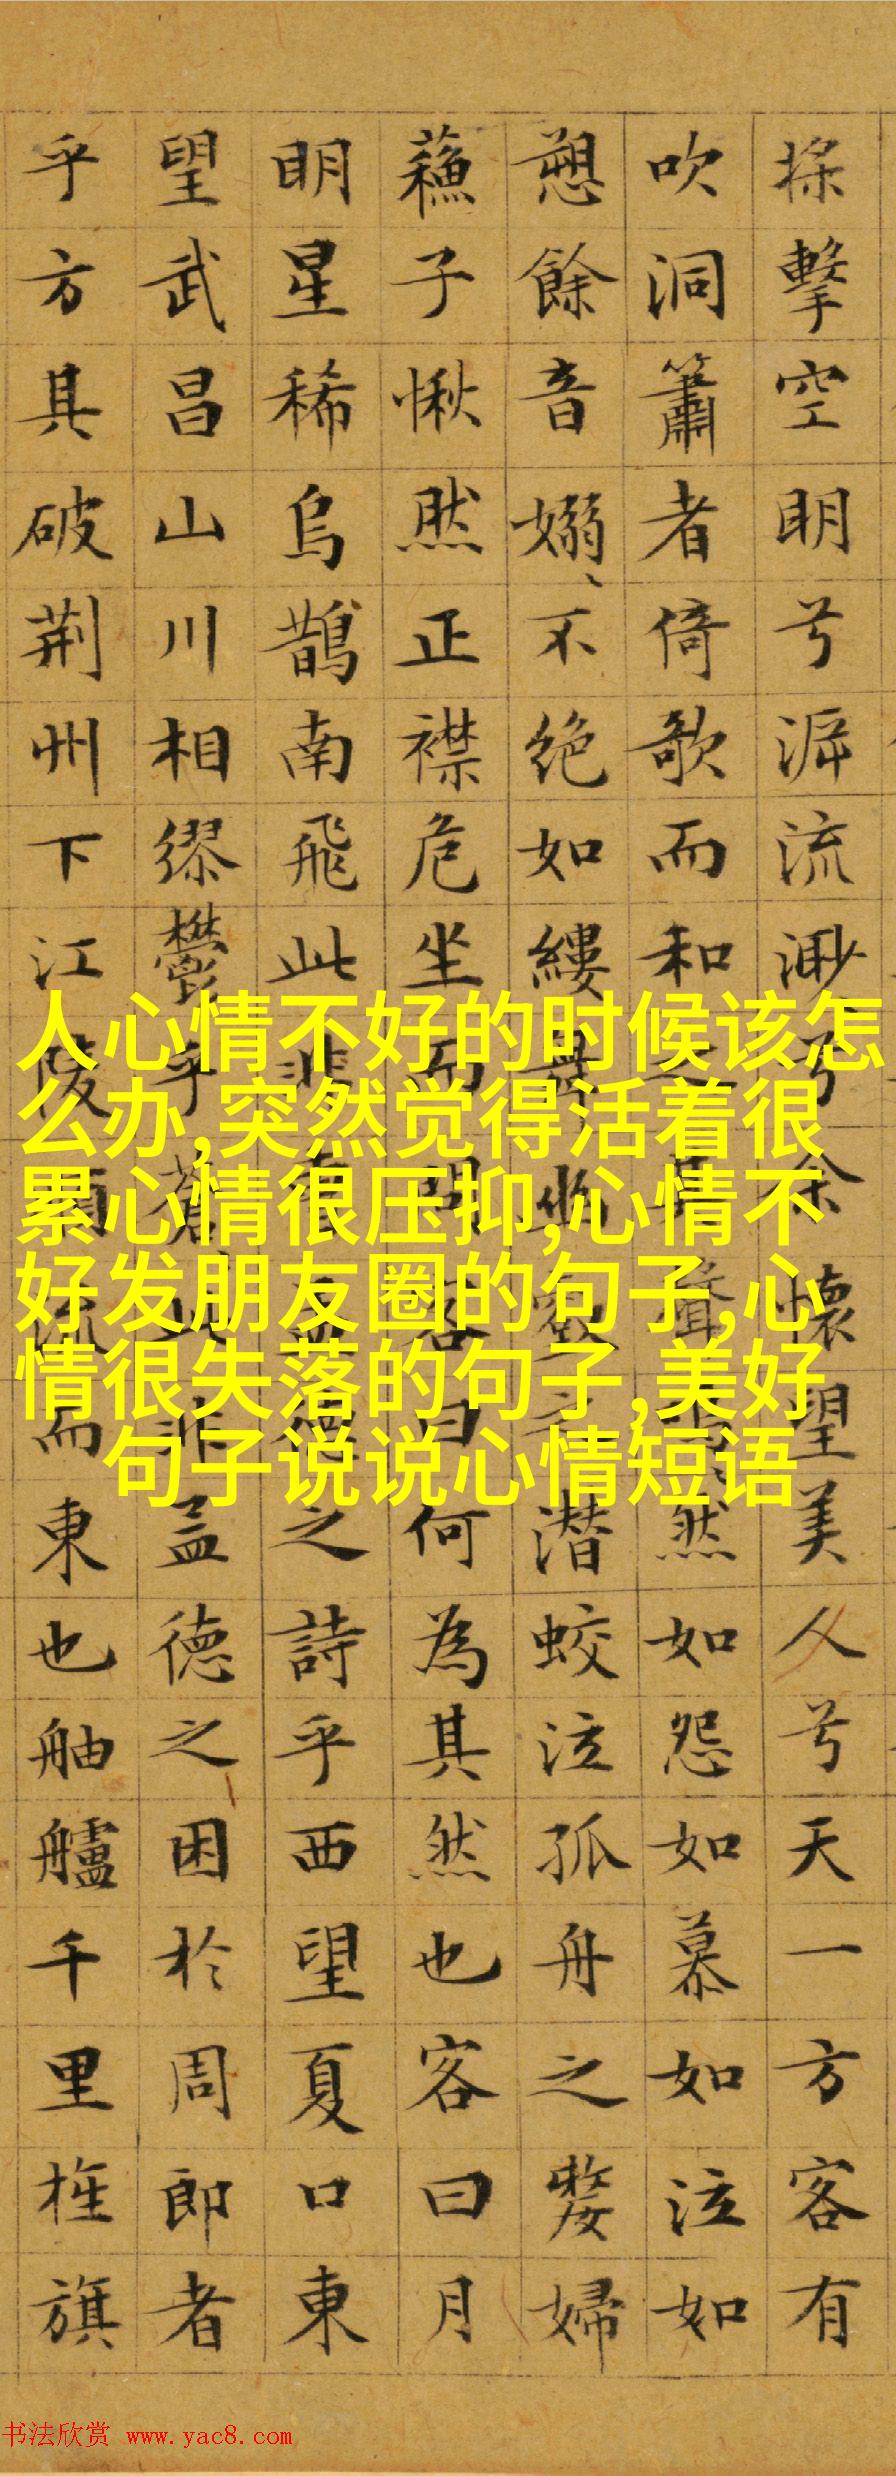 㨾擊空明兮泝流渺兮余懷望美人兮天一方客有
吹洞簫者倚歌而和之其聲嗚、然如怨如慕如泣如
愬餘音嫋、不絕如縷舞幽壑之潛蛟泣孤舟之嫠婦
蘇子愀然正襟危坐而問客曰何為其然也客曰月
明星稀烏鵲南飛此非曹孟德之詩乎西望夏口東
望武昌山川相繆鬱乎蒼、此非孟德之困於周郎者
乎方其破荊州下江陵順流而東也舳艫千里旌旗
人心情不好的时候该怎
么办,突然觉得活着很
累心情很压抑,心情不
好发朋友圈的句子,心
情很失落的句子,美好
句子说说心情短语
书法欣赏 www.yac8.com